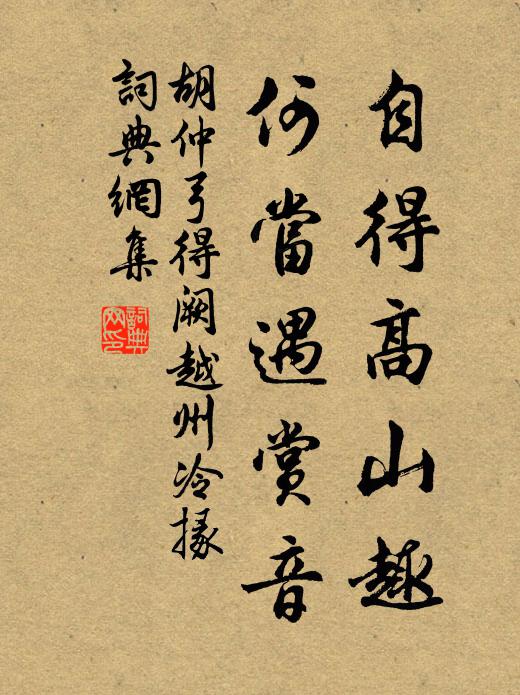 自得高山趣
何當遇賞音
胡仲弓得闕越州冷掾
詞典網集
詞典網印